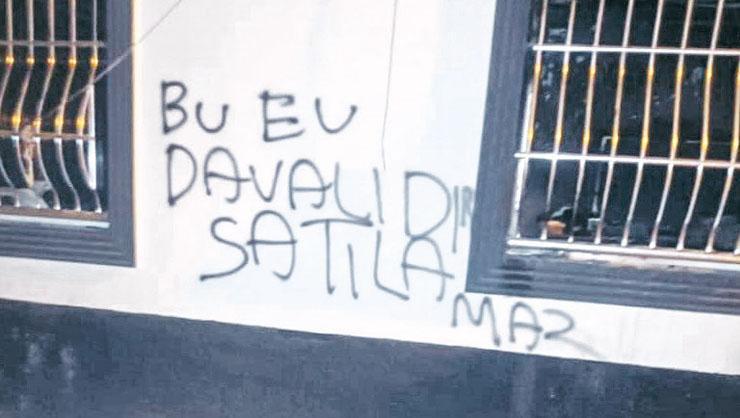 BU EU
DAVALI DIR
SATILA
MAZ